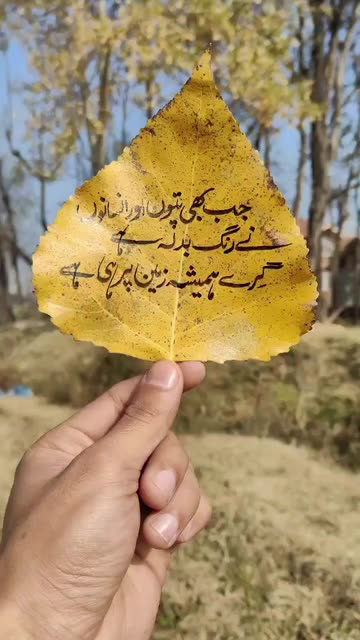 جب بھی پتوں اور انسانوں
نے رنگ بدلہ ہے
گرے ہمیشہ زمین پر ہی ہے